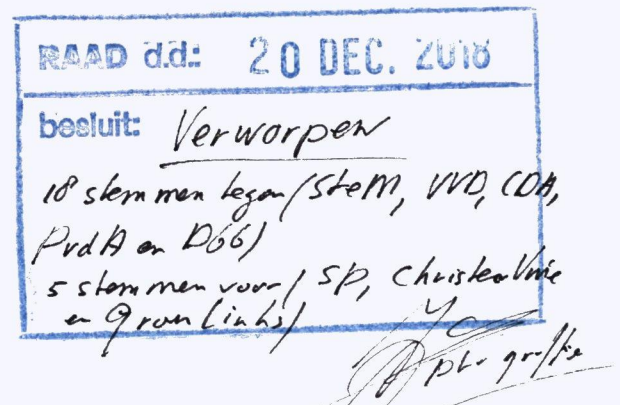 RAAD d.d.: 20 DEC. 2018
besluit: Verworpen
18 stemmen tegen (SteM, VVD, CDA,
PvdA en D66)
5 stemmen voor (SP, ChristenUnie
en GroenLinks)
griffie